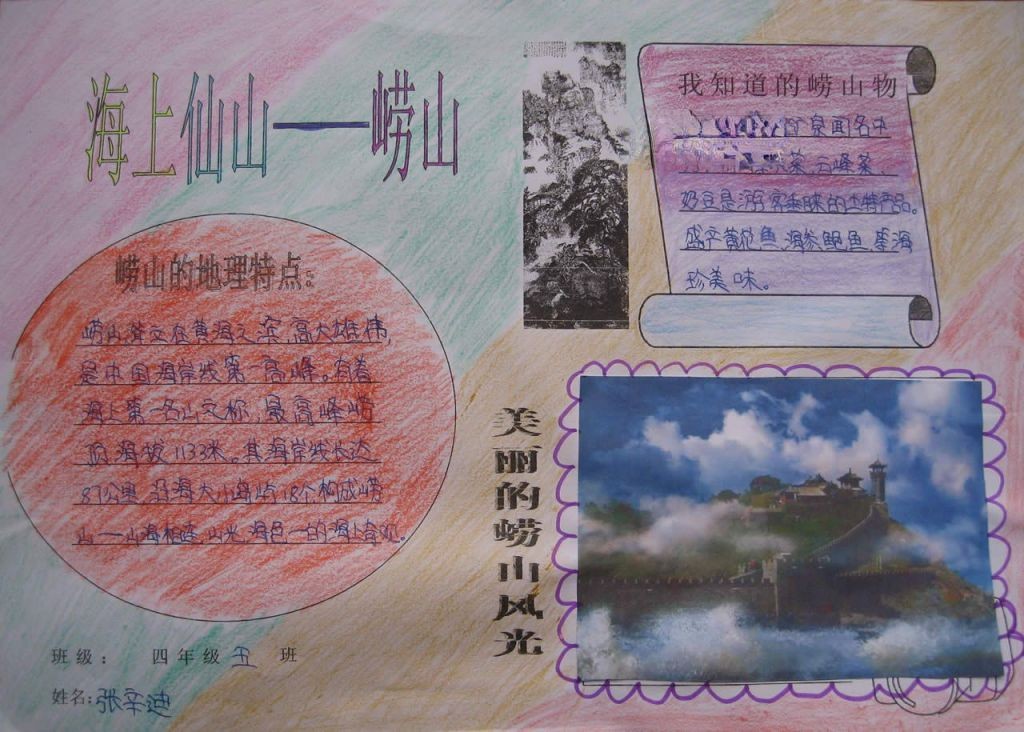 海上仙山——崂山
崂山的地理特点：
崂山耸立在黄海之滨，高大雄伟，
是中国海岸线第一高峰。有着
海上第一名山之称，最高峰崂
顶海拔1133米。其海岸线长达
87公里，沿海大小岛屿18个构成崂
山—山海相连，山光海色一的海上奇观。
班级： 四年级五 班
姓名：张辛迪
我知道的崂山物
泉闻名中
菜，云峰茶
奶豆是游客垂睐的土特产品。
盛产黄花鱼，海参鲍鱼，等海
珍美味。
美丽的崂山风光